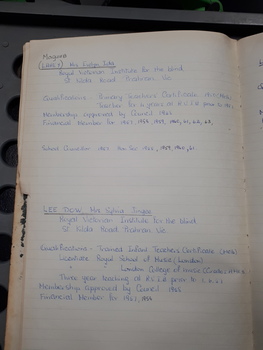 Maguire
(LINES) Mrs
Royal Victorian Institute for the Blind
St. Kilda Road Prahran Vic
Qualifications - Primary Teachers Certificate
Teacher for 4 years at R.V.I.B. prior to 1951
Membership approved by Council 1965
Financial Member for 1957, 1958, 1959, 1960, 61, 62, 63,
School Question 1957 1958, 1959, 1960, 61
LEE DOW, Mrs Sylvia
Royal Victorian Institute for the Blind
St. Kilda Road Prahran Vic.
Qualifications - Trained Infant Teachers Certificate
Licentiate Royal School of Music (London)
" London College of Music
Three year teaching at R.V.I.B. prior to
Membership approved by Council 1965
Financial Member for 1957, 1958